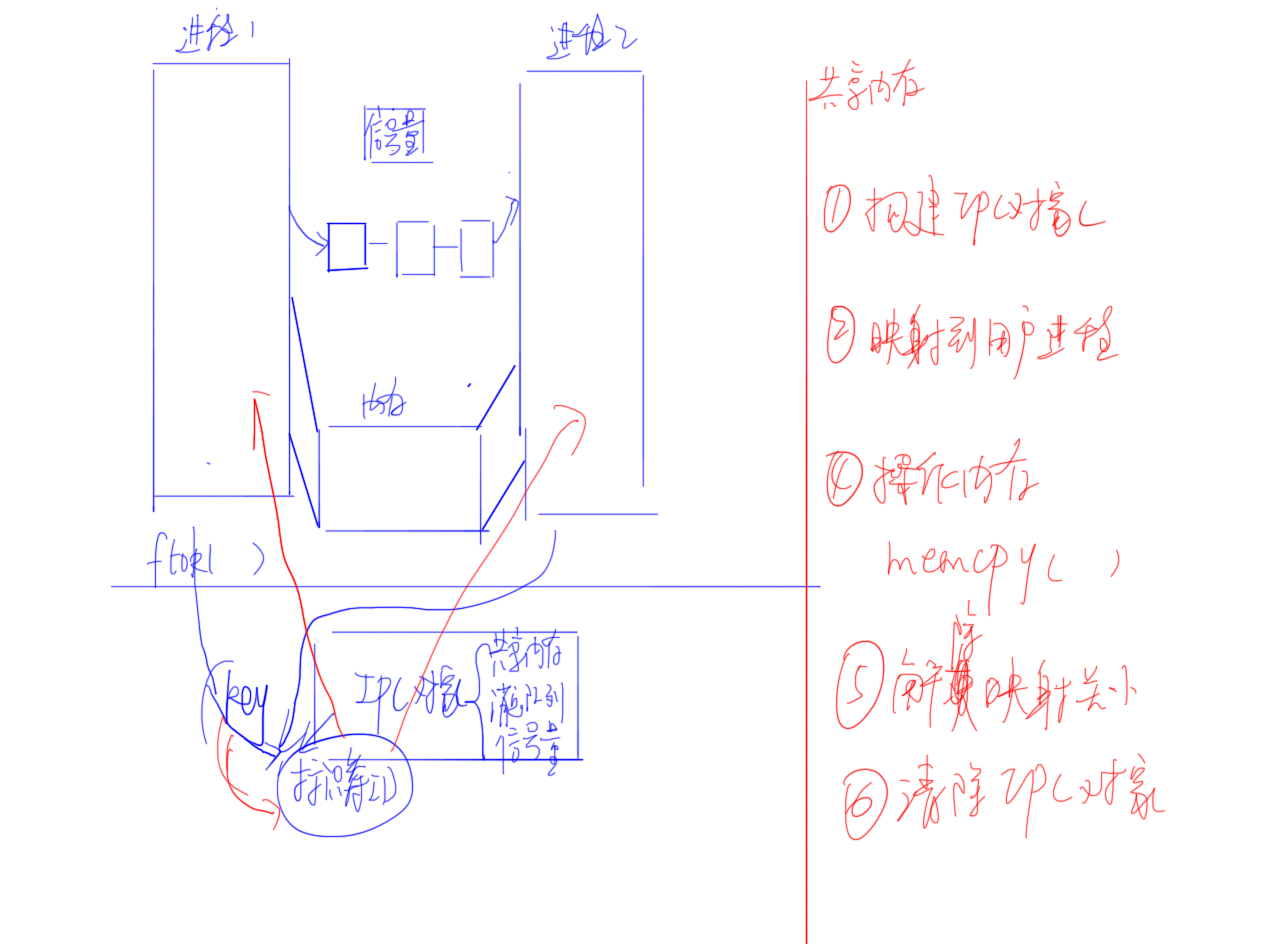 进程1
进程2
信号量
内存
ftok( )
key
IPC对象
共享内存
消息队列
信号量
标识符ID
共享内存
① 构建IPC对象
② 映射到用户进程
④ 操作内存
memcpy( )
⑤ 解除映射关小
⑥ 清除IPC对象